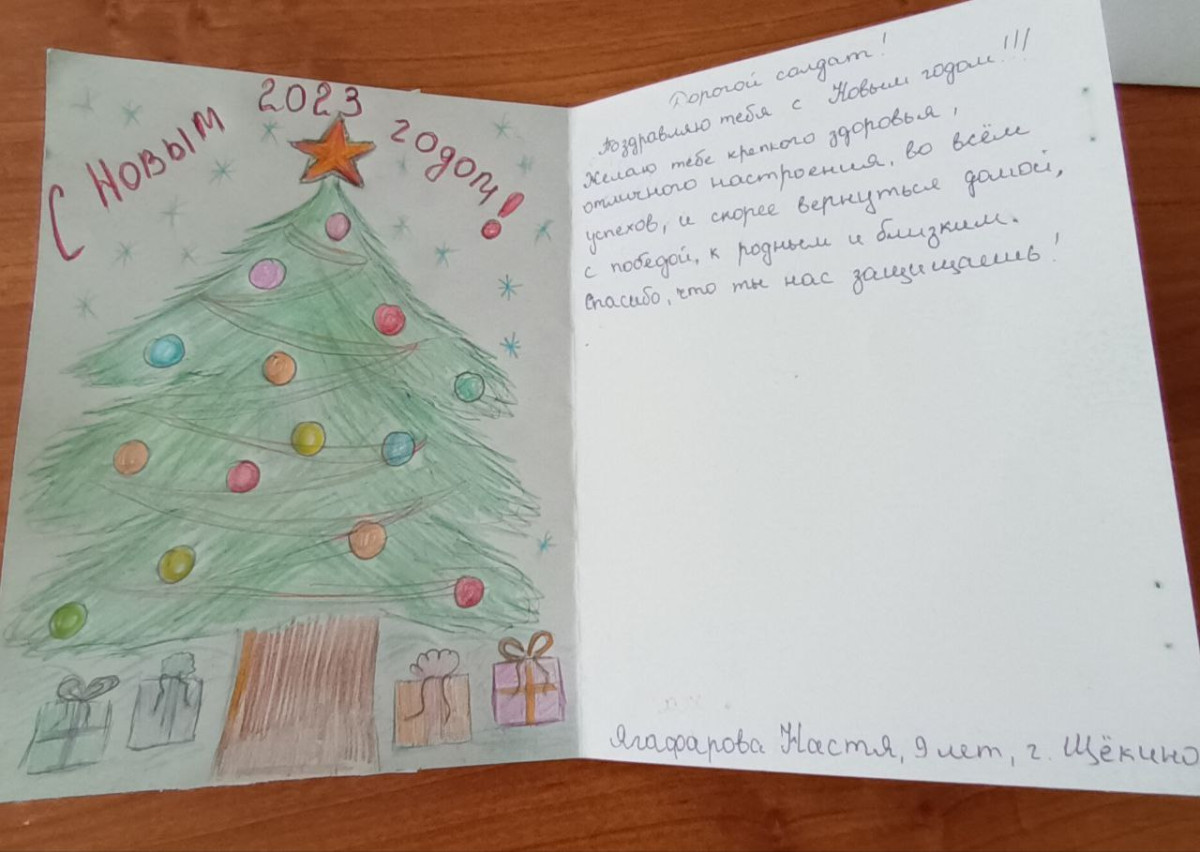 С Новым 2023 годом!
Дорогой солдат!
Поздравляю тебя с Новым годом!!!
Желаю тебе крепкого здоровья,
отличного настроения, во всём
успехов, и скорее вернуться домой,
с победой, к родным и близким.
Спасибо, что ты нас защищаешь!
Ягафарова Настя, 9 лет, г. Щёкино